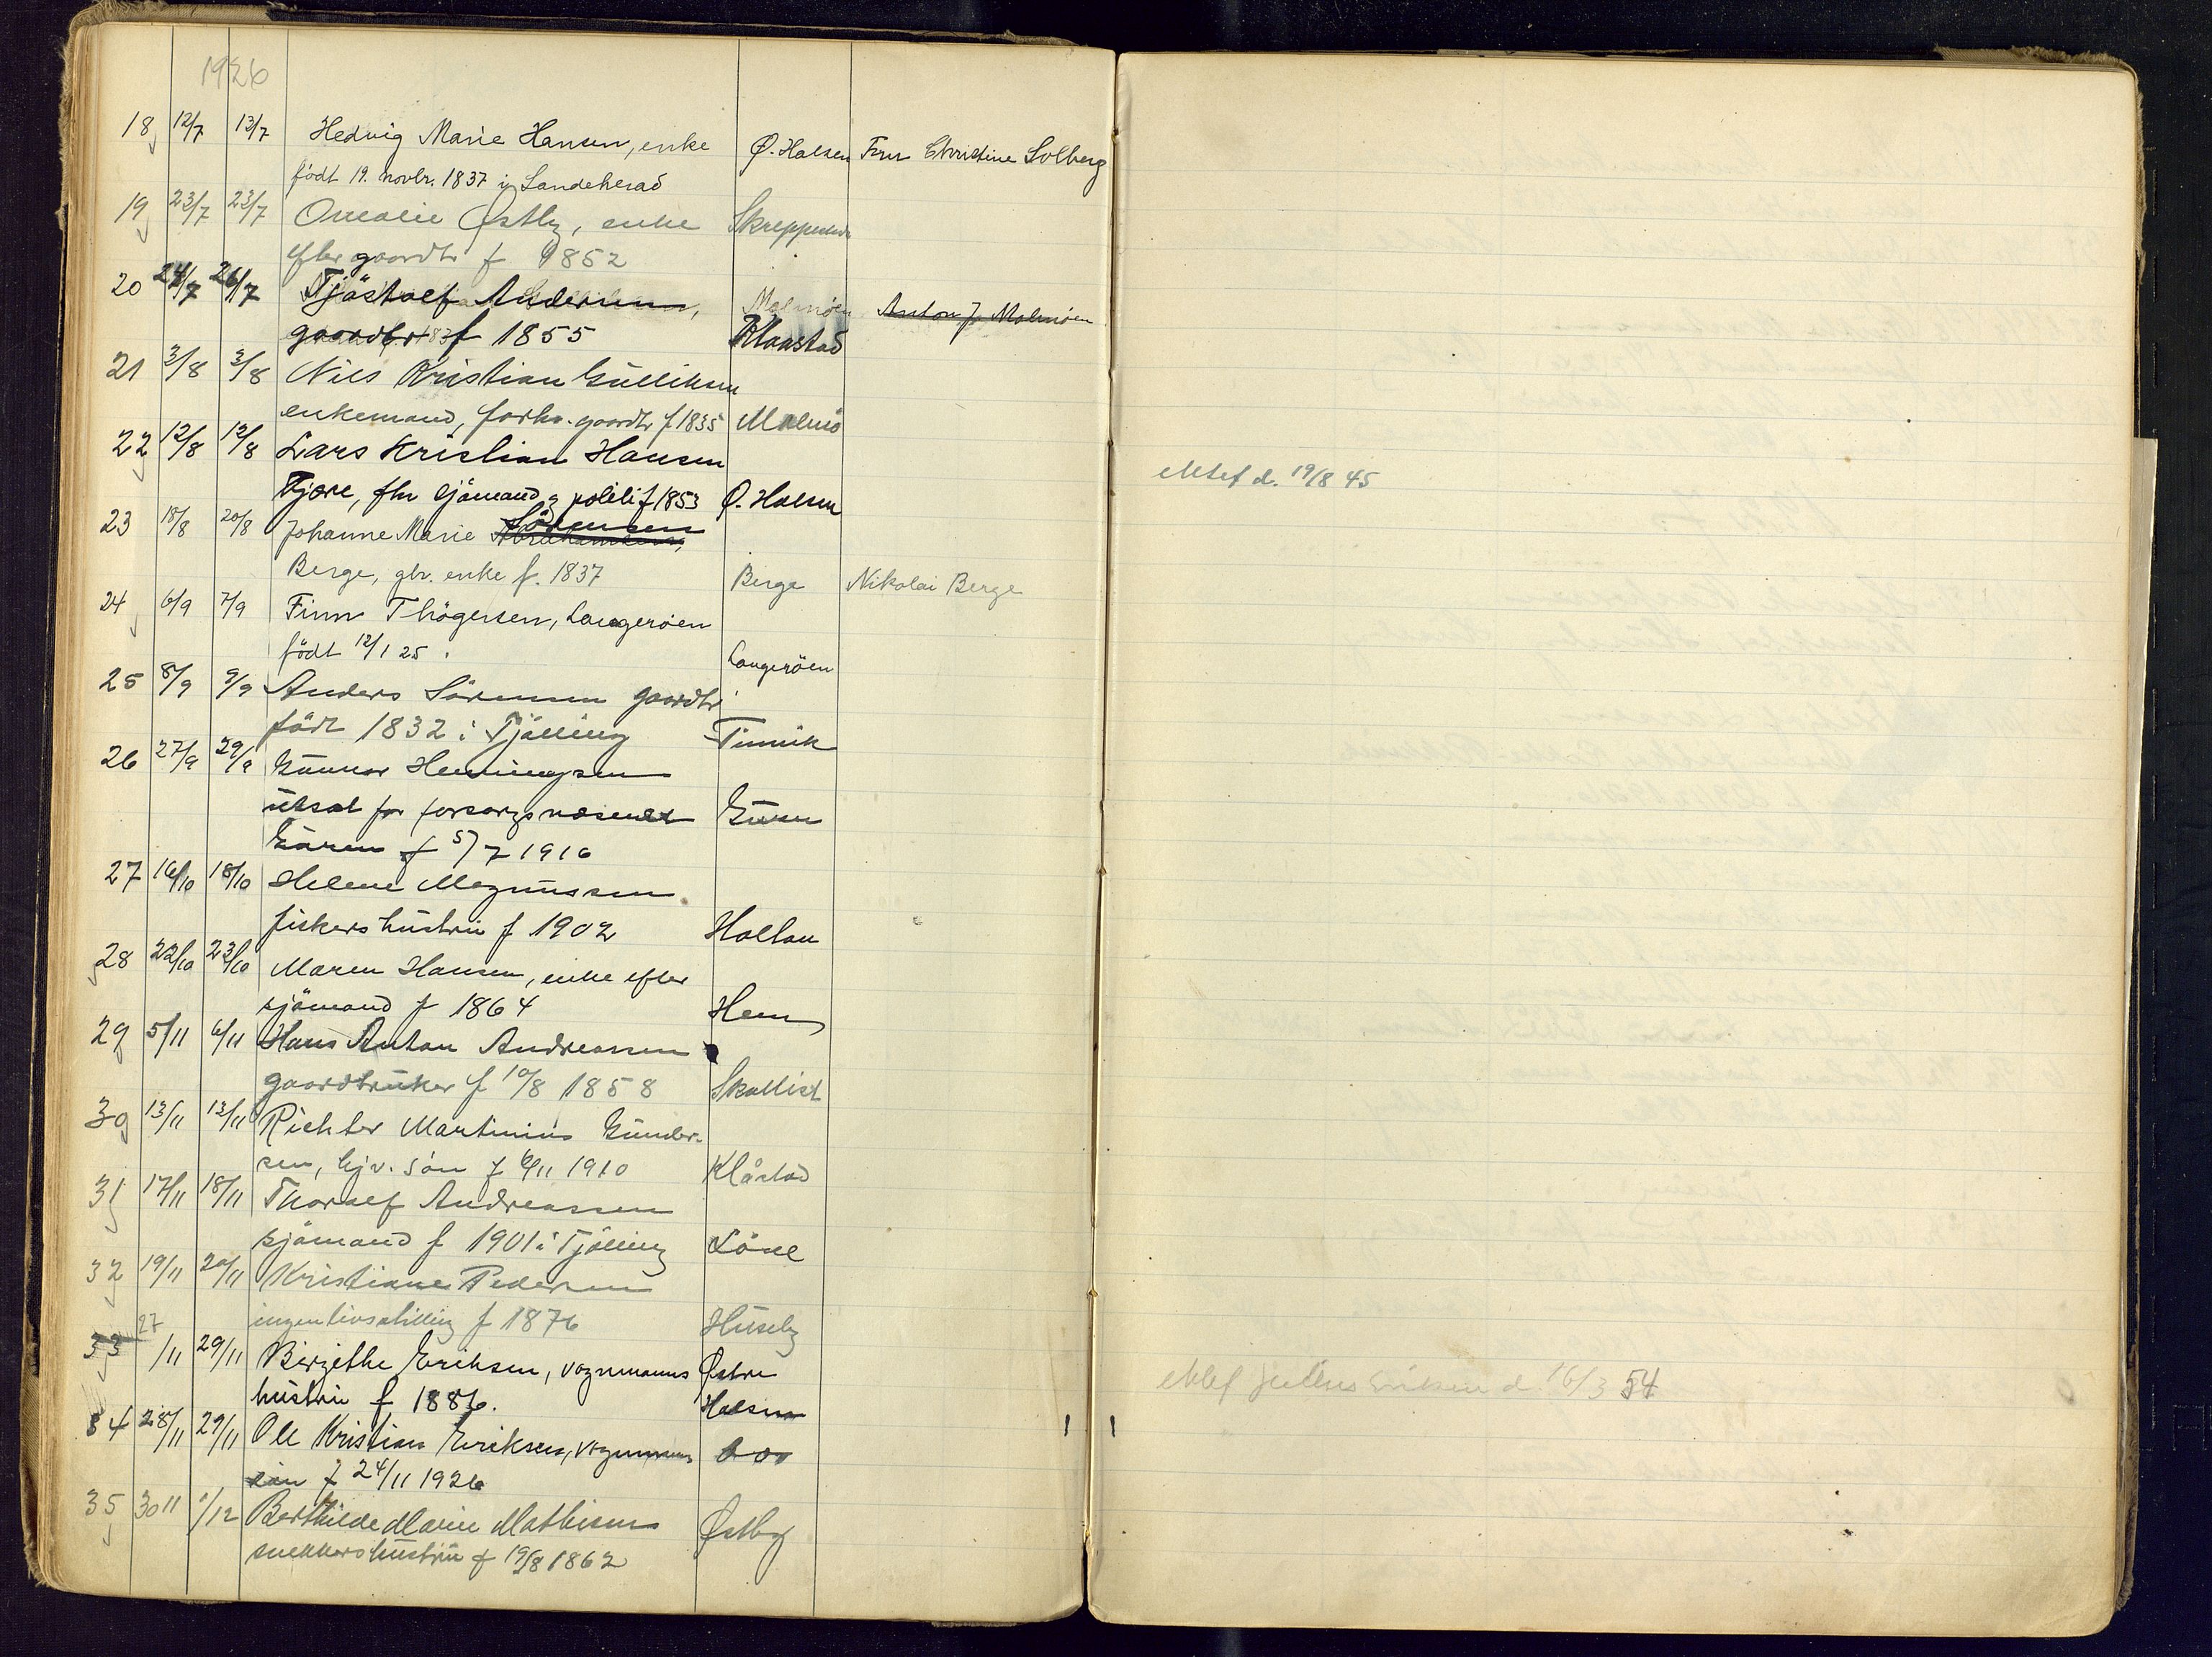 1926
18 12/7 13/7 Hedvig Marie Hansen, enke Ø. Halsen Fru Christine Solberg
födt 19. novbr. 1837 i Sandeherad
19 23/7 23/7 Østby, enke
efter gaardbr f 1852
20 24/7 26/7 Tjöstolf Andersen, Malmöen Anton J. Malmöen
gaardbr f 1855 Klaastad
21 3/8 3/8 Nils Kristian Gülliksen
enkemand, forhv. gaardbr f 1835 Malmö
22 12/8 12/8 Lars Kristian Hansen
Fjære, fhv sjömand og politi f 1853 Ø. Halsen
23 18/8 20/8 Johanne Marie Sörensen
Berge, gbr. enke f. 1837 Berge Nikolai Berge
24 6/9 7/9 Finn Thögersen, Langeröen
födt 12/1 25. Langeröen
25 8/9 9/9 Anders Sörensen gaardbr
födt 1832 i Tjölling Tinvik
26 27/9 29/9 Günnar Henningsen
ütsat for forsorgsvæsenet
f 5/7 1916
27 16/10 18/10 Helene Magnüssen
fiskers hüstrü f 1902 Hallau
28 22/10 23/10 Maren Hansen, enke efter
sjömand f 1864 Hem
29 5/11 6/11 Hans Anton Andreassen
gaardbrüker f 10/8 1858 Skallist
30 13/11 13/11 Richter Martinius Günder-
sen, hjv. sön f 6/11 1910 Klåstad
31 17/11 18/11 Thoralf Andreassen
sjömand f 1901 i Tjölling Löve
32 19/11 20/11 Kristiane Pedersen
ingen livsstilling f 1876 Hüseby
33 27/11 29/11 Birgithe Eriksen, vognmanns Østre
hüstrü f 1886. Halsen
34 28/11 29/11 Ole Kristian Eriksen, vognmanns
sön f 24/11 1926
35 30 11 1/12 Berthilde Marie Mathisen Østby
snekkers hüstrü f 19/8 1862
d. 19/8 45
Julius Eriksen d. 16/3 54